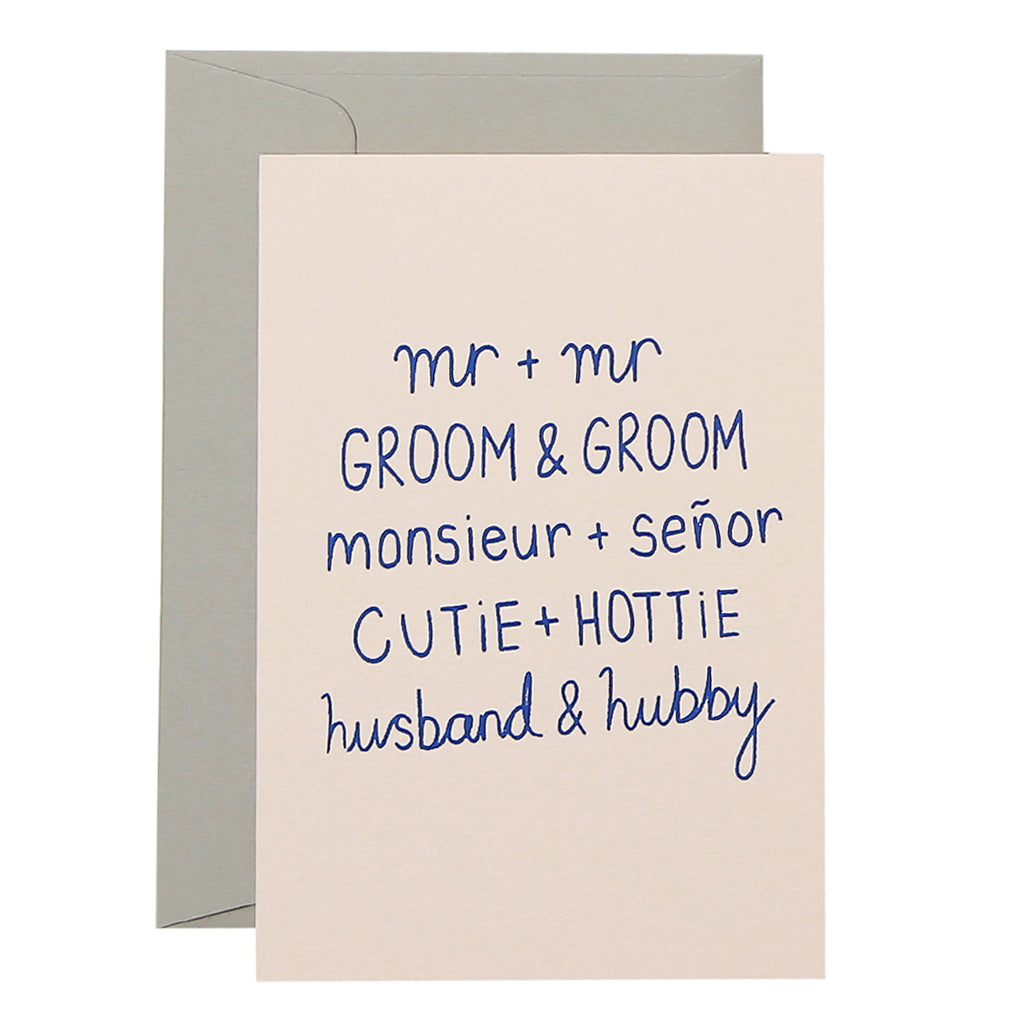 mr + mr
GROOM & GROOM
monsieur + señor
CUTiE + HOTTiE
husband & hubby